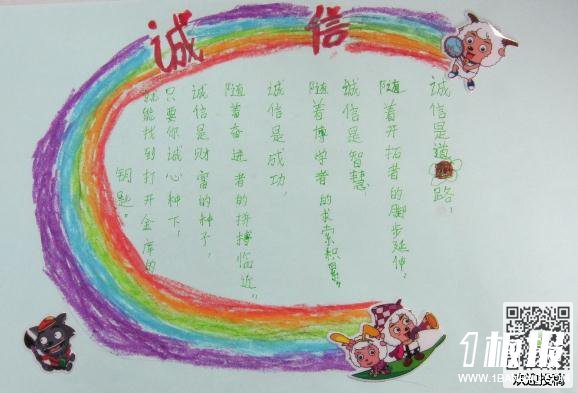 诚信
诚信是道路，
随着开拓者的脚步延伸。
诚信是智慧，
随着博学者的求索积累。
诚信是成功，
随着奋进者的拼搏临近。
诚信是财富的种子，
只要你诚心种下，
就能找到打开金库的
钥匙。
1板报
WWW.1BANBAO.COM
欢迎投稿